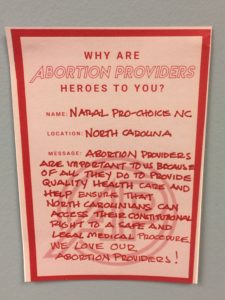 WHY ARE
ABORTION PROVIDERS
HEROES TO YOU?
NAME: NARAL PRO-CHOICE NC
LOCATION: NORTH CAROLINA
MESSAGE: ABORTION PROVIDERS
ARE IMPORTANT TO US BECAUSE
OF ALL THEY DO TO PROVIDE
QUALITY HEALTH CARE AND
HELP ENSURE THAT
NORTH CAROLINIANS CAN
ACCESS THEIR CONSTITUTIONAL
RIGHT TO A SAFE AND
LEGAL MEDICAL PROCEDURE.
WE LOVE OUR
ABORTION PROVIDERS!